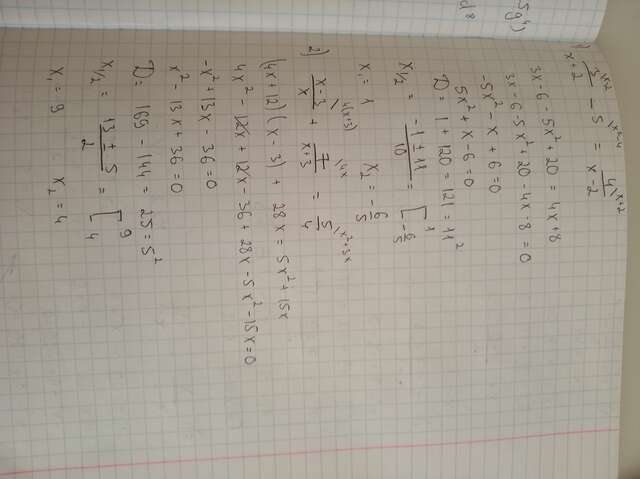 5g⁴)
1) 3/(x+2) \x-2 - 5 \x²-4 = 4/(x-2) \x+2
3x - 6 - 5x² + 20 = 4x + 8
3x - 6 - 5x² + 20 - 4x - 8 = 0
-5x² - x + 6 = 0
5x² + x - 6 = 0
D = 1 + 120 = 121 = 11²
x1/2 = (-1 ± 11)/10 = [ 1 -6/5
x₁ = 1 x₂ = -6/5
2) (x-3)/x \4(x+3) + 7/(x+3) \4x = 5/4 \x²+3x
(4x+12)(x-3) + 28x = 5x² + 15x
4x² - 12x + 12x - 36 + 28x - 5x² - 15x = 0
-x² + 13x - 36 = 0
x² - 13x + 36 = 0
D = 169 - 144 = 25 = 5²
x1/2 = (13 ± 5)/2 = [ 9 4
x₁ = 9 x₂ = 4